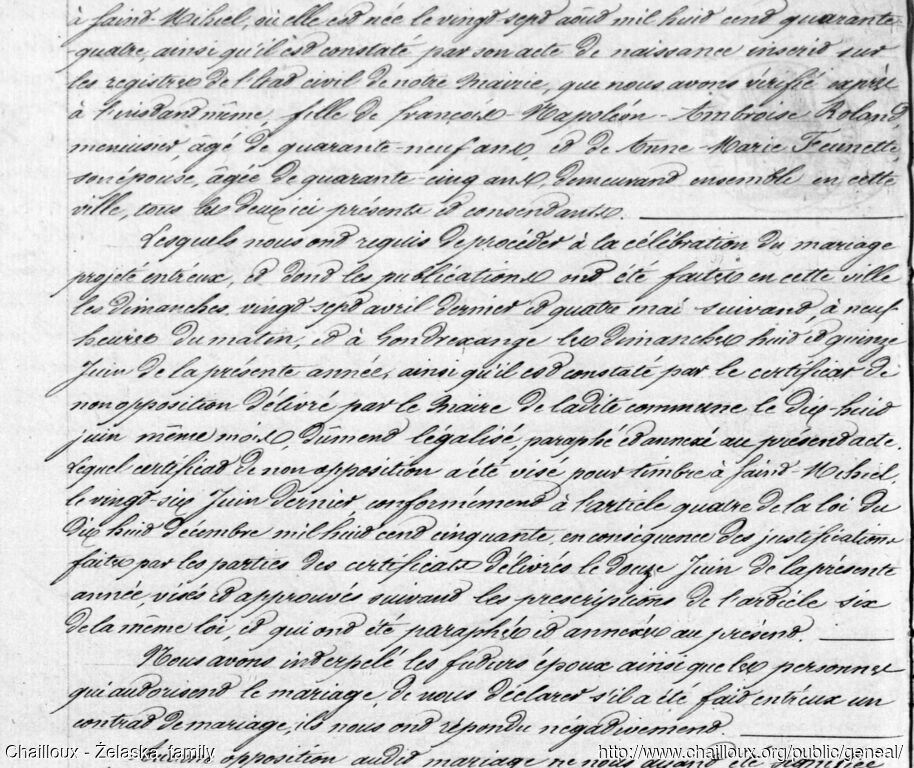 à Saint-Mihiel, où elle est née le vingt sept août mil huit cent quarante
quatre, ainsi qu'il est constaté par son acte de naissance inscrit sur
les registres de l'Etat civil de notre Mairie, que nous avons vérifié exprès
à l'instant même, fille de françois-Napoléon-Ambroise Roland,
menuisier, âgé de quarante-neuf ans, et de Anne-Marie Feunette,
son épouse, âgée de quarante cinq ans, demeurant ensemble en cette
ville, tous les deux ici présents et consentants.
Lesquels nous ont requis de procéder à la célébration du mariage
projeté entr'eux, et dont les publications ont été faites en cette ville
les dimanches vingt sept avril dernier et quatre mai suivant, à neuf
heures du matin, et à Gondrexange les dimanches huit et quinze
Juin de la présente année, ainsi qu'il est constaté par le certificat de
non opposition délivré par le Maire de ladite commune le dix-huit
juin même mois, dûment légalisé, paraphé et annexé au présent acte.
Lequel certificat de non opposition a été visé pour timbre à Saint-Mihiel,
le vingt-six Juin dernier, conformément à l'article quatre de la loi du
dix huit décembre mil huit cent cinquante, en conséquence des justifications
faites par les parties des certificats délivrés le douze Juin de la présente
année, visés et approuvés suivant les prescriptions de l'article six
de la même loi, et qui ont été paraphés et annexés au présent.
Nous avons interpelé les futurs époux ainsi que les personnes
qui autorisent le mariage, de nous déclarer s'il a été fait entr'eux un
contrat de mariage, ils nous ont répondu négativement.
opposition audit mariage ne nous ayant été signifiée
Chailloux - Żelaska family
http://www.chailloux.org/public/geneal/